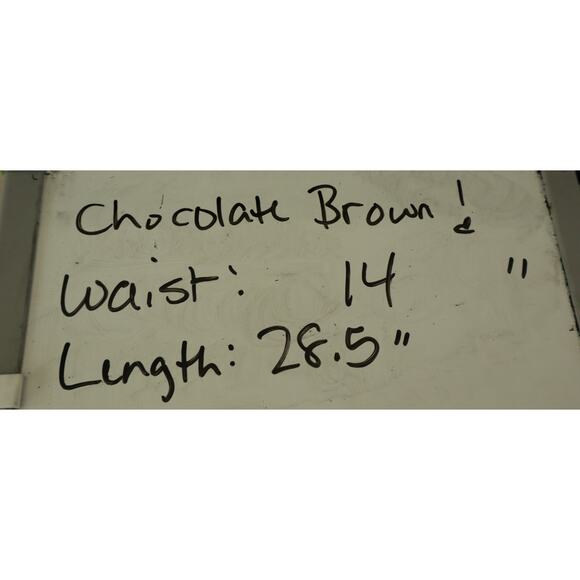 Chocolate Brown!
Waist: 14 "
Length: 28.5"